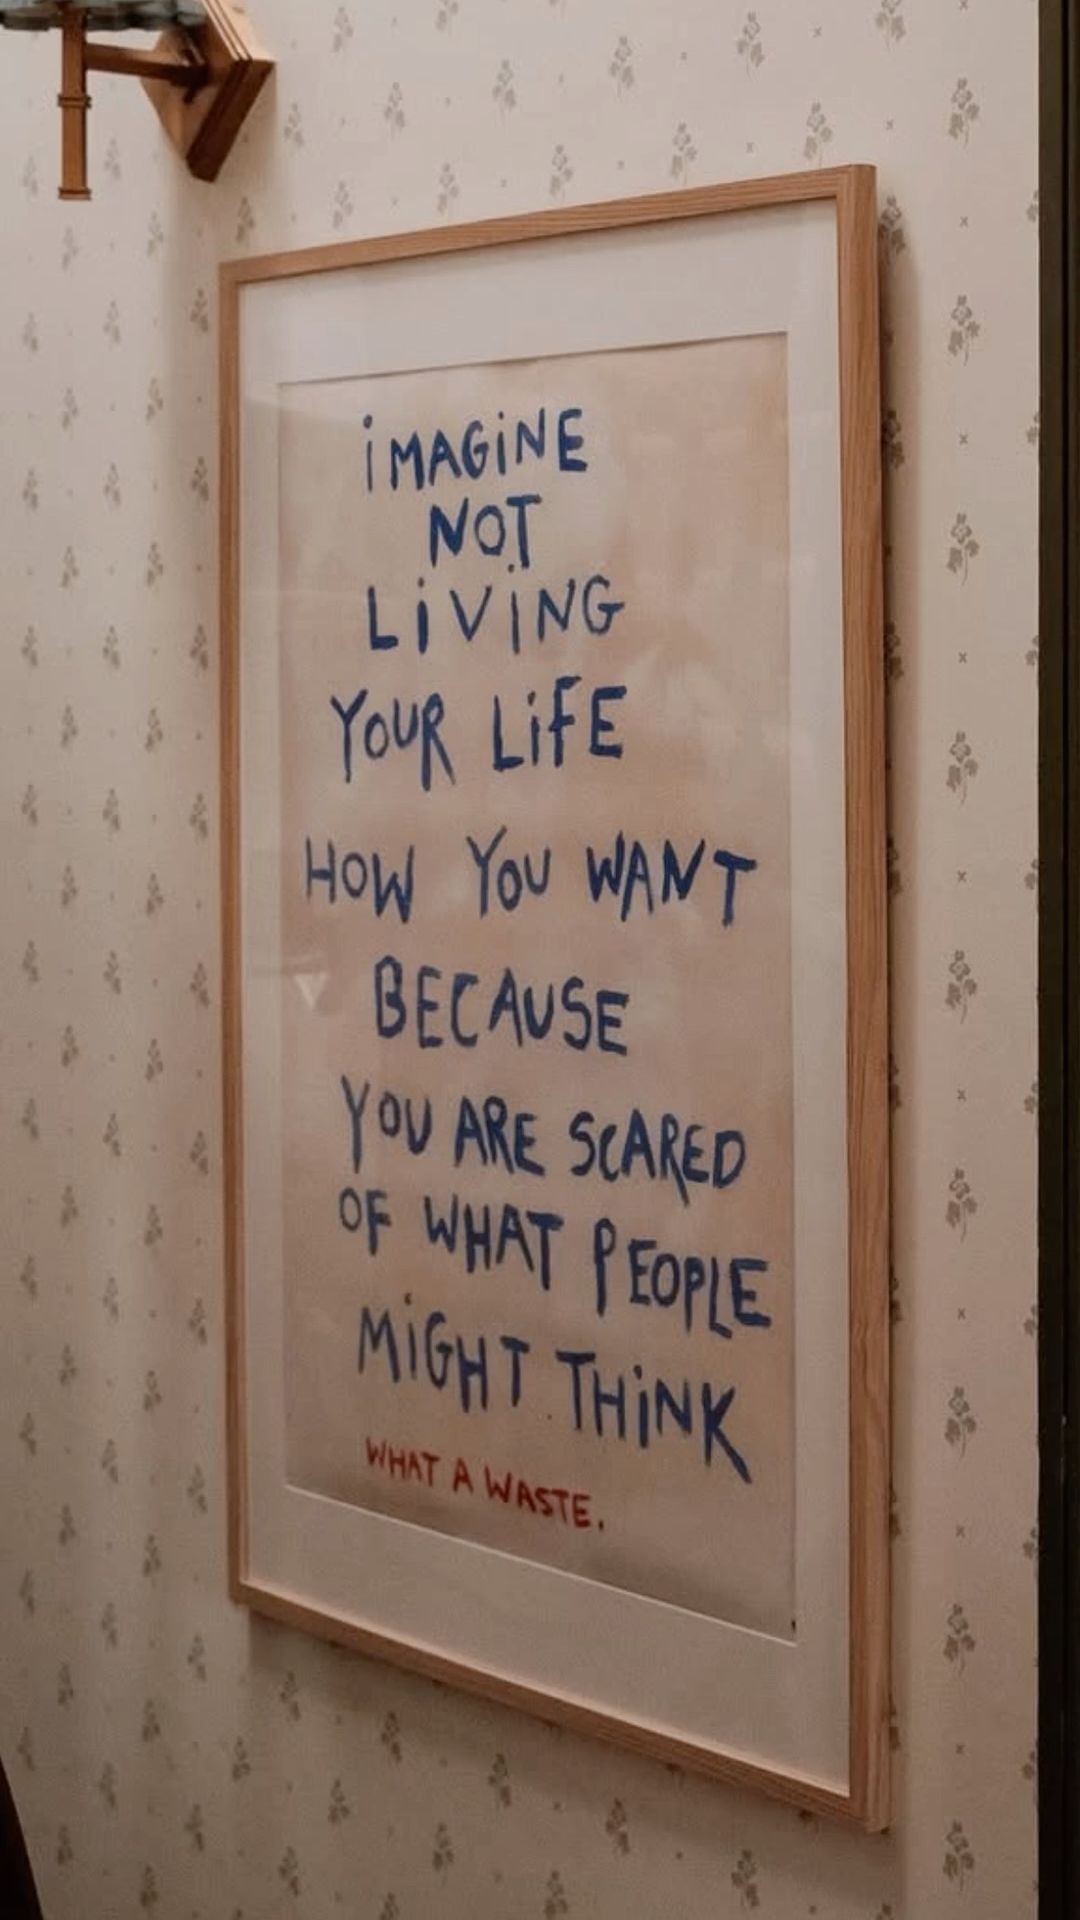 iMAGiNE
NOT
LiViNG
YOUR LiFE
HOW YOU WANT
BECAUSE
YOU ARE SCARED
OF WHAT PEOPLE
MiGHT THiNK
WHAT A WASTE.